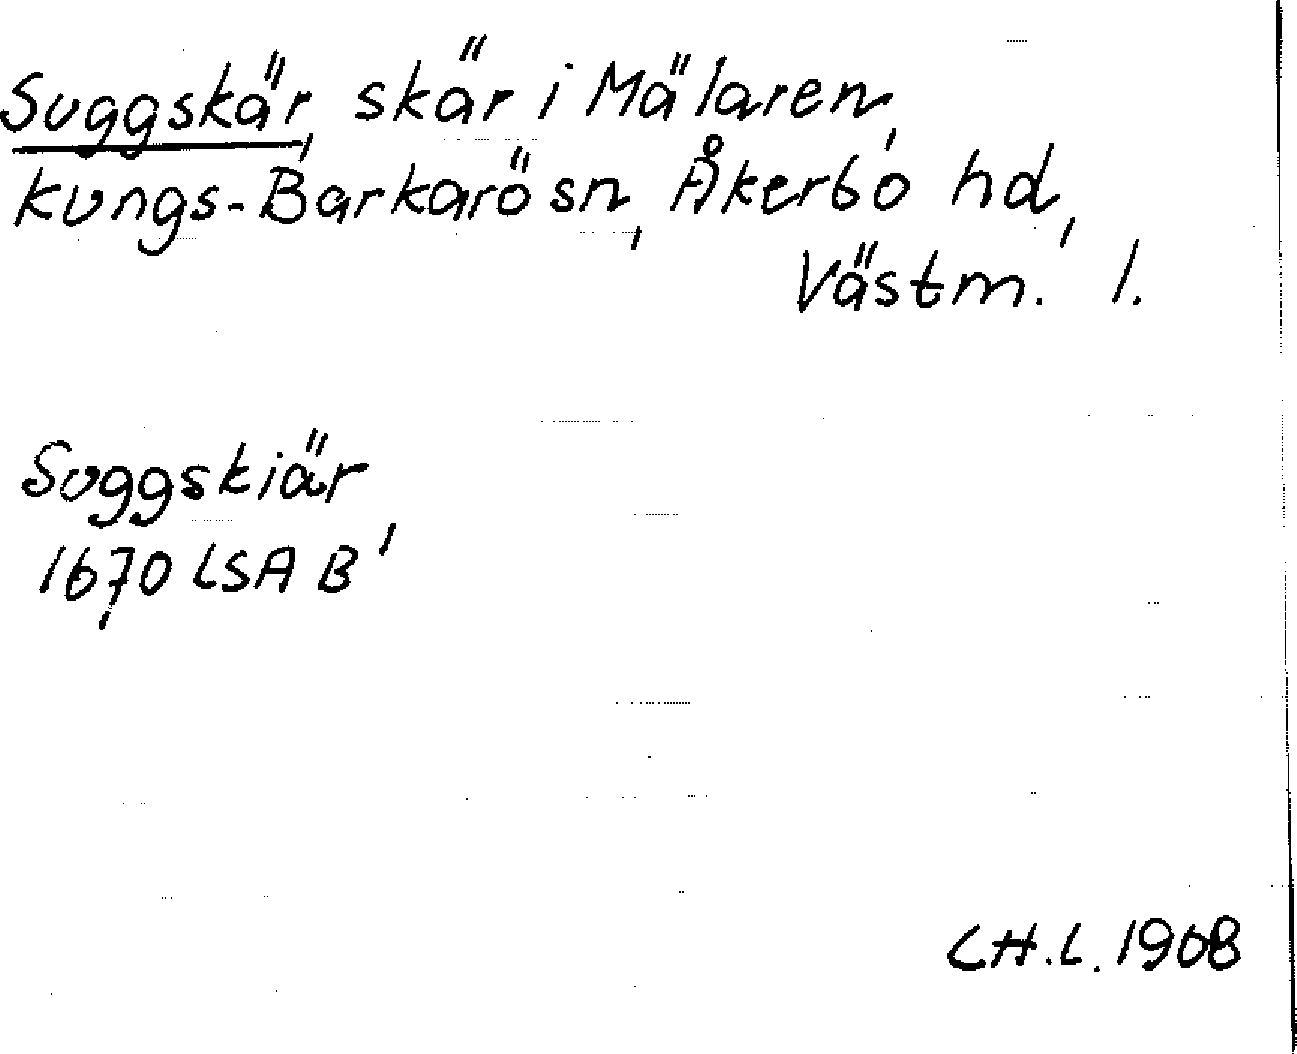 Suggskär, skär i Mälaren,
Kungs-Barkarö sn, Åkerbo hd,
Västm. l.
Suggskiär
1670 LSA B'
C.H.L. 1908